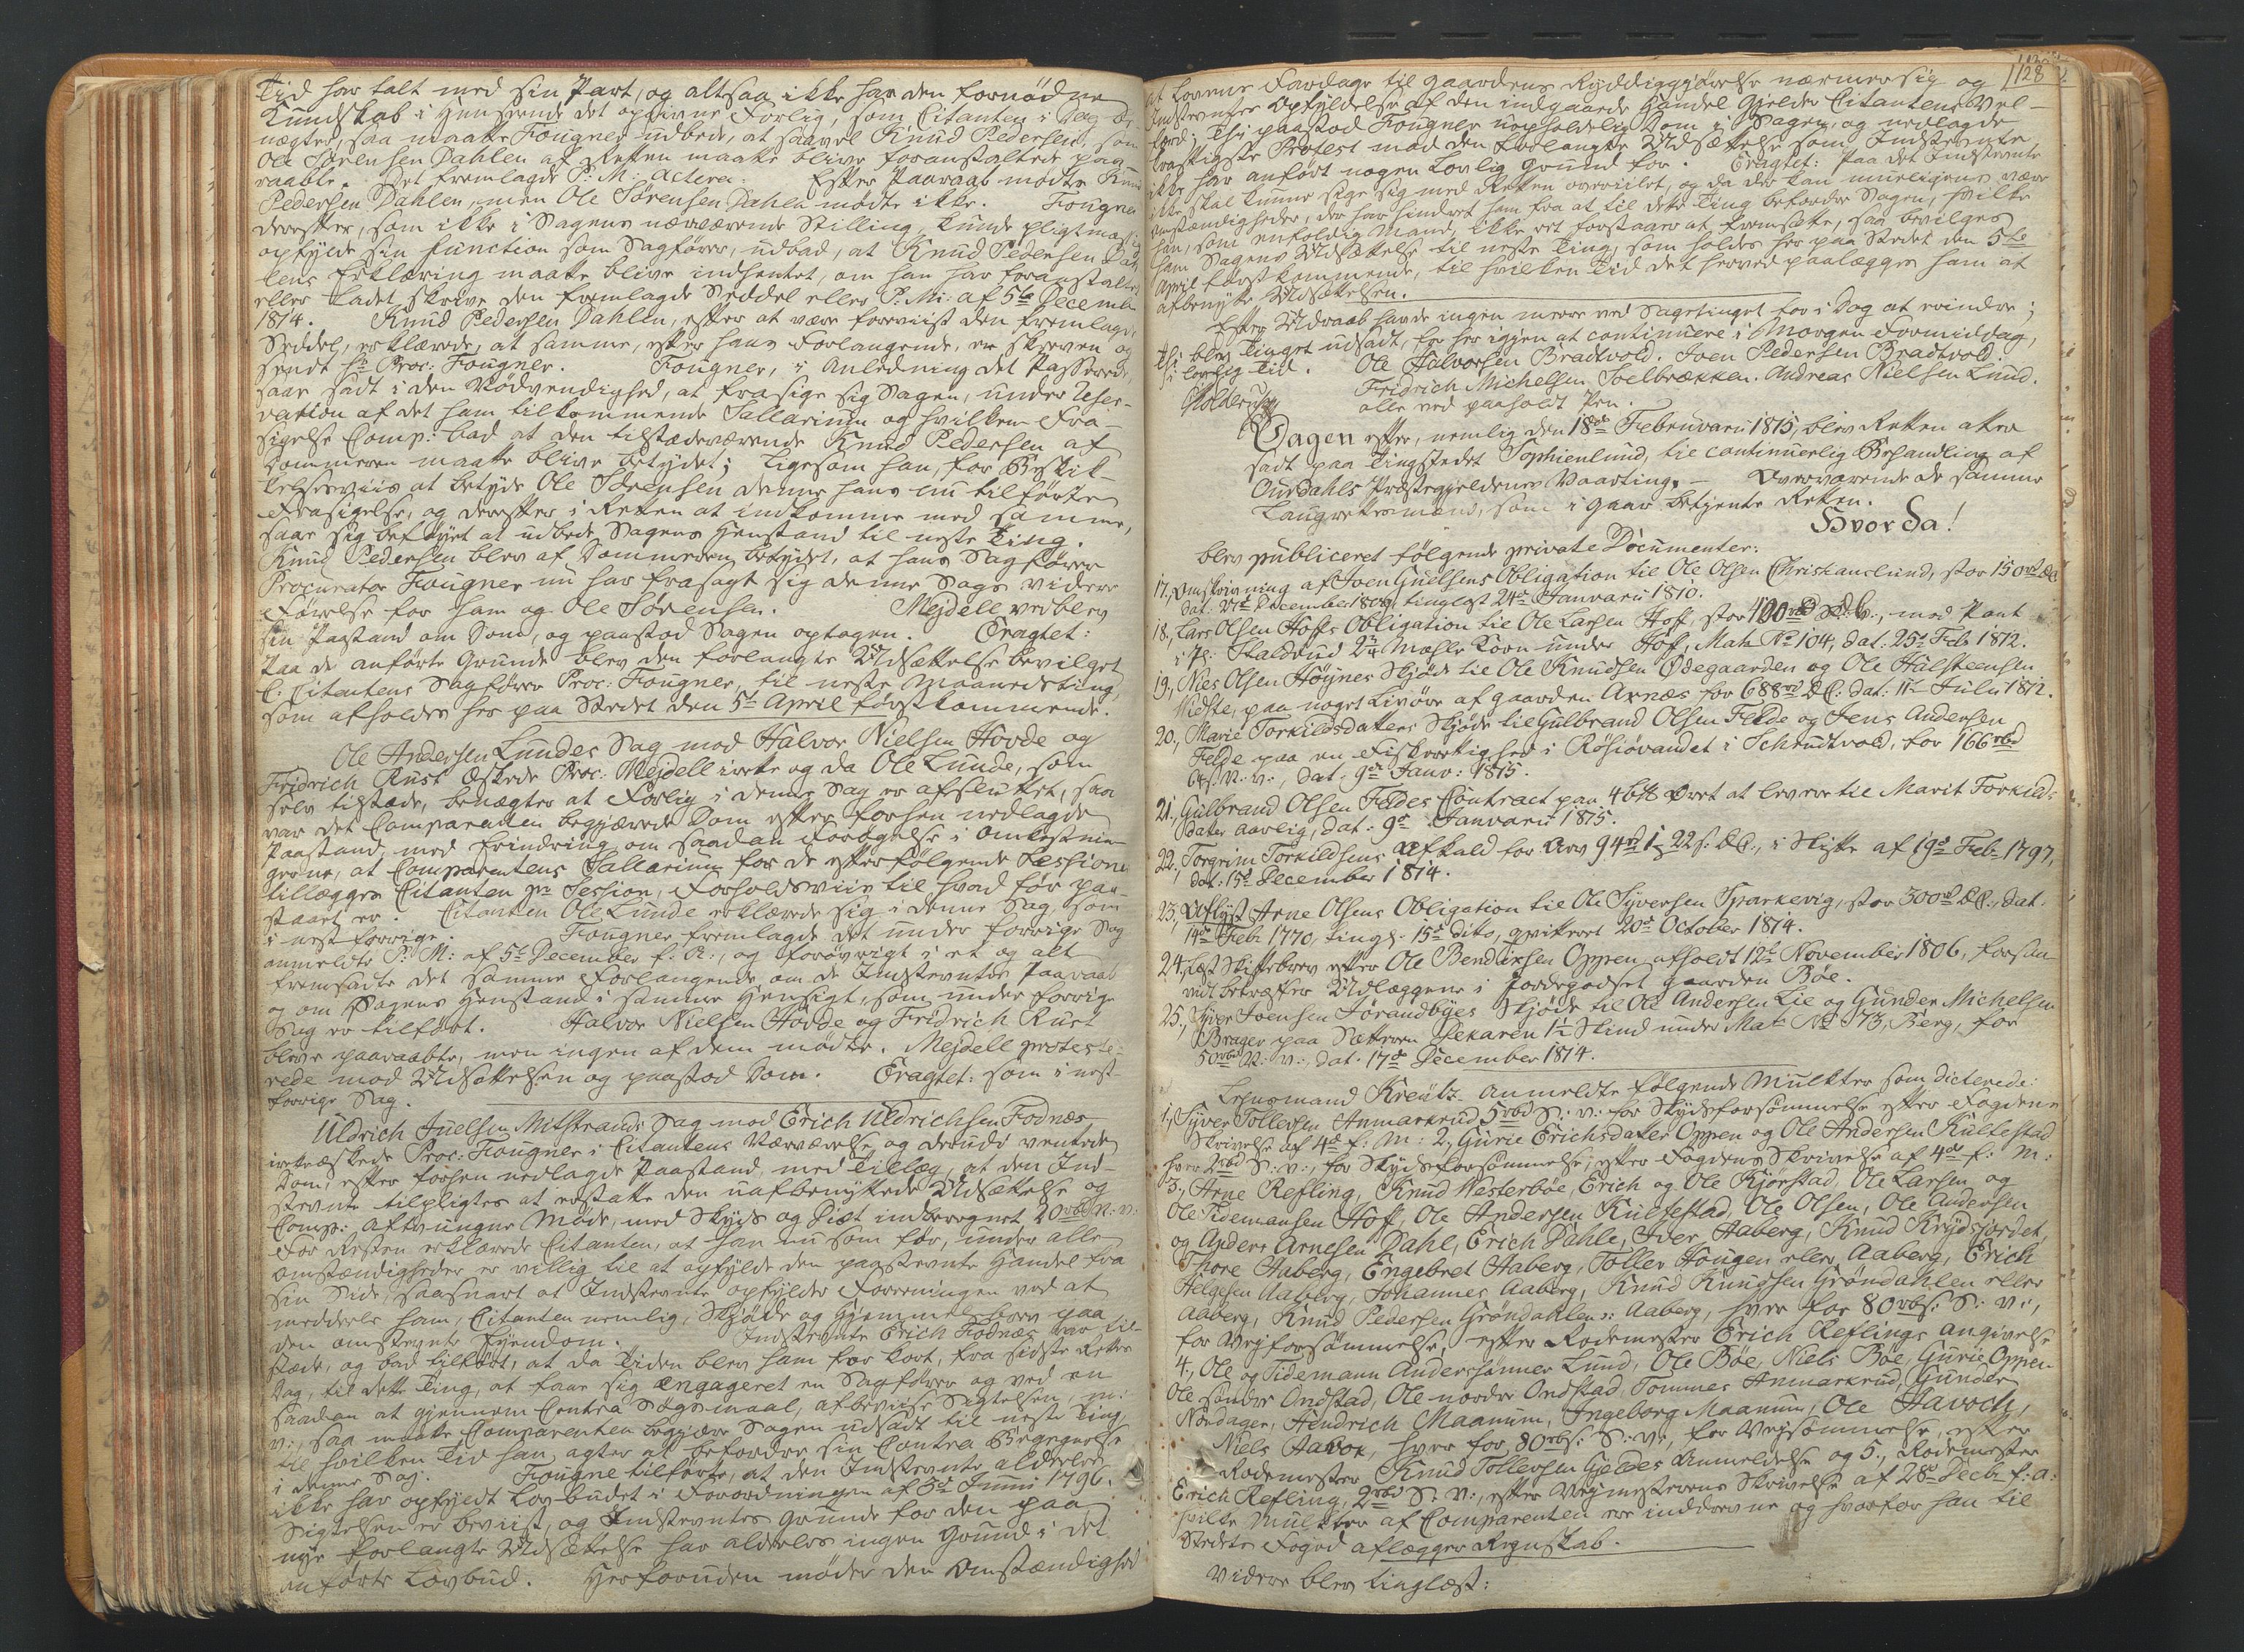 Tid har talt med sin Part, og altsaa ikke har den fornødne
Kundskab i Henseende det opgivne Forlig, som Citanten i Dag be
nægter, saa maatte Fougner udbede, at saavel Knud Pedersen, som
Ole Sørensen Dahlen af Retten maatte blive foranstaltede paa
raabte. Det fremlagde P: M: acteres. Efter Paaraab mødte Knud
Pedersen Dahlen, men Ole Sørensen Dahlen mødte ikke. Fougner
derefter, som ikke i Sagens nærværende Stilling kunde pligtmæssig
opfylde sin function som Sagfører, udbad, at Knud Pedersen Dah
lens Erklæring maatte blive indhentet, om han har foranstaltet
eller ladet skrive den fremlagde Seddel eller P: M: af 5te Decembr
1814. Knud Pedersen Dahlen, efter at være foreviist den fremlagde
Seddel, erklærede, at samme, efter hans Forlangende, er skreven og
sendt Hr Proc: Fougner. Fougner, i Anledning det Passerede,
saae sadt i den Nødvendighed, at frasige sig Sagen, under reser-
vation af det ham tilkommende Sallarium og hvilken Fra-
sigelse Comp: bad at den tilstædeværende Knud Pedersen af
Dommeren maatte blive betydet; ligesom han, for Beskik-
kelsesviis at betyde Ole Sørensen denne hans nu tilførte
Frasigelse, og derefter i Retten at indkomme med samme,
saae sig beføyet at udbede Sagens Henstand til neste Ting.
Knud Pedersen blev af Dommeren betydet, at hans Sagfører
Procurator Fougner nu har frasagt sig denne Sags videre
Førelse for ham og Ole Sørensen. Mejdell vedblev
sin Paastand om Dom, og paastod Sagen optagen. Eragtet:
Paa de anførte Grunde blev den forlangte Udsættelse bevilget
C: Citantens Sagfører Proc: Fougner, til neste Maanedsting,
som afholdes her paa Stedet den 5te April førstkommende.
Ole Andersen Lundes Sag mod Halvor Nielsen Hovde og
Fridrich Rust æskede Proc: Mejdell irette og da Ole Lunde, som
selv tilstæde, benægter at Forlig i denne Sag er afsluttet, saa
var det Comparenten begjærede Dom efter forhen nedlagde
Paastand, med Erindring om saadan Forøgelse i Omkostnin-
gerne, at Comparentens Sallarium for de efterfølgende Sessioner
tillægges Citanten pr Session, Forholdsviis til hvad før paa-
staaet er. Citanten Ole Lunde erklærede sig i denne Sag, som
i nest forrige. Fougner fremlagde det under forrige Sag
anmeldte P: M: af 5te December f: A:, og forøvrigt i et og alt
fremsadte det samme Forlangende om de Indstevntes Paaraab
og om Sagens Henstand i samme Hensigt, som under forrige
Sag er tilført. Halvor Nielsen Hovde og Fridrich Rust
bleve paaraabte, men ingen af dem mødte. Mejdell proteste-
rede mod Udsættelsen og paastod Dom. Eragtet: som i nest
forrige Sag.
Uldrich Juelsen Midtstrands Sag mod Erich Uldrichsen Fodnæs
iretteæskede Proc: Fougner i Citantens Nærværelse og Desuden ventede
Dom, efter forhen nedlagde Paastand, med Tillæg, at den Ind-
stevnte tilpligtes at erstatte den uafbenyttede Udsættelse og
Comp: aftvungne Møde, med Skyds og Diæt indberegnet 20 rbd N: v:
For Resten erklærede Citanten, at han nu som før, under alle
Omstændigheder er villig til at opfylde den paastevnte Handel fra
sin Side, saasnart at Indstevnte opfylder Foreningen ved at
meddele ham, Citanten nemlig, Skjøde og Hjemmelsbrev paa
den omstevnte Eyendom. Indstevnte Erich Fodnæs var til-
stæde, og bad tilført, at da Tiden blev ham for kort, fra sidste Rettes
Dag, til dette Ting, at faae sig engageret en Sagfører og ved en
saadan at gjennem Contra Søgsmaal, afbeviise Sigtelsen, m:
v:, saa maatte Comparenten begjære Sagen udsadt til neste Ting
til hvilken Tid han agter at befordre sin Contra Begegnelse
i denne Sag. Fougne tilførte, at den Indstevnte aldeles
ikke har opfyldt Lov-budet i Forordningen af 3de Junii 1796.
Sigtelsen er beviist, og Indstevntes Grunde for den paa
nye forlangte Udsættelse har aldeles ingen Grund i det
anførte Lovbud. Herforuden møder den Omstændighed
128
at Lovens Fardage til Gaardens Ryddiggjørelse nærmer sig og
Indstevntes Opfyldelse af den indgaaede Handel gjelder Citantens Vel-
færd. Thi paastod Fougner uopholdelig Dom i Sagen, og nedlagde
kraftigste Protest mod den forlangte Udsættelse som Indstevnte
ikke har anført nogen Lovlig Grund for. Eragtet: Paa det Indstevnte
ikke skal kunne sige sig med Retten overiilet, og da der kan mueligens være
Omstændigheder, der har hindret ham fra at til dette Ting befordre Sagen, hvilke
han, som enfoldig Mand, ikke ret forstaaer at fremsætte, saa bevilges
ham Sagens Udsættelse til neste Ting, som holdes her paa Stedet den 5te
April førstkommende, til hvilken Tid det herved paalægges ham at
afbenytte Udsættelsen.
Efter Udraab havde ingen mere ved Sagetinget for i Dag at erindre;
Thi blev Tinget udsadt, for her igjen at continuere i Morgen Formiddag,
i lovlig Tid. Ole Halvorsen Bradtvold. Joen Pedersen Bradtvold.
Fridrich Michelsen Soelbrækken. Andreas Nielsen Lund.
alle med paaholdt Pen.
Dagen efter, nemlig den 18de Februarii 1815, blev Retten atter
sadt paa Tingstedet Sophienlund, til continuerlig Behandling af
Ourdahls Præstegjeldenes Vaarting. – Overværende de samme
Laugrettesmænd, som i Gaar betjente Retten.
Hvor Da!
blev publiceret følgende private Documenter:
17., Omskrivning af Joen Guelsens Obligation til Ole Olsen Christianslund, stor 150 rd DC
dat: 21de December 1809, tinglyst 24de Januarii 1810.
18., Lars Olsen Hoffs Obligation til Ole Larsen Hoff, stor 400 rd D. C:, med Pant
i Pl: Skaldrud 2¼ Mæhle Korn under Hof, Mat: No 104, dat: 25de Feb: 1812.
19., Niels Olsen Høynes Skjøde til Ole Knudsen Ødegaarden og Ole Halsteensen
Nidste, paa noget Livøre af Gaarden Arnæs for 688 rd DC: dat: 11te Julii 1812.
20., Marie Torkildsdatters Skjøde til Gulbrand Olsen Felde og Jens Andersen
Felde paa en Fiskerettighed i Røsiøvandet i Schrudtvold, for 166 rbd
64 s. N: v:, dat: 9de Janv: 1815.
21., Gulbrand Olsen Feldes Contract paa 4 bs Ørret at levere til Marit Torkilds
dater aarlig, dat: 9de Januarii 1815.
22., Torgrim Torkildsens Afkald for Arv 94 rd 1 22 s. DC:, i Skifte af 19de Feb: 1797,
dat: 15de December 1814.
23., Aflyst Arne Olsens Obligation til Ole Syversen Sparkevig, stor 300 rd DC:, dat.
14de Feb: 1770, tingl: 15de dito, qvitteret 20de October 1814.
24., Læst Skiftebrev efter Ole Bendixsen Oppen afholdt 12te November 1806, forsaa
vidt betræffer Udlæggene i Jordegodset Gaarden Bøe.
25., Syver Joensen Jørandbyes Skjøde til Ole Andersen Lie og Gunder Michelsen
Brager paa Sætteren Dekaren 1½ Skind under Mat: No 173, Berg, for
50 rbd N: v:, dat: 17de December 1814.
Lensmand Kreutz anmeldte følgende Mulkter som dicterede:
1., Syver Tollersen Anmarkrud 5 rbd S: v: for Skydsforsømmelse efter Fogdens
Skrivelse af 4de f: M: 2., Gurie Erichsdatter Oppen og Ole Andersen Kultestad
hver 2 rbd S: v:, for Skydsforsømmelse, efter Fogdens Skrivelse af 4de f: M:
3., Arne Refling, Knud Westerbøe, Erich og Ole Kjørstad, Ole Larsen og
Ole Tidemansen Hoff, Ole Andersen Kultestad, Ole Olsen, Ole Andersen
og Anders Arnesen Dahl, Erich Dahle, Iver Aaberg, Knud Krydsjordet,
Thore Aaberg, Engebret Aaberg, Toller Hougen eller Aaberg, Erich
Helgesen Aaberg, Johannes Aaberg, Knud Knudsen Grøndahlen eller
Aaberg, Knud Pedersen Grøndahlen s: Aaberg, hver for 80 rbs: S: v:,
for Vejforsømmelse, efter Rodemester Erich Reflings Angivelse
4., Ole og Tidemann Anderssønner Lund, Ole Bøe, Niels Bøe, Gurie Oppen
Ole søndre Ondstad, Ole nordre Ondstad, Tommes Anmarkrud, Gunder
Nordager, Hendrich Maanum, Ingeborg Maanum, Ole Havoch,
Niels Havok, hver for 80 rbs: S: v:, for Vejsømmelse, efter
Rodemester Knud Tollersen Gjeldes Anmeldelse og 5., Rodemester
Erich Refling, 2 rbd S: v:, efter Vejmesterens Skrivelse af 28de Decb: f: a:
hvilke Mulkter af Comparenten ere inddrevne og hvorfor han til
Stedets Foged aflægger Regnskab.
Videre blev tinglæst: